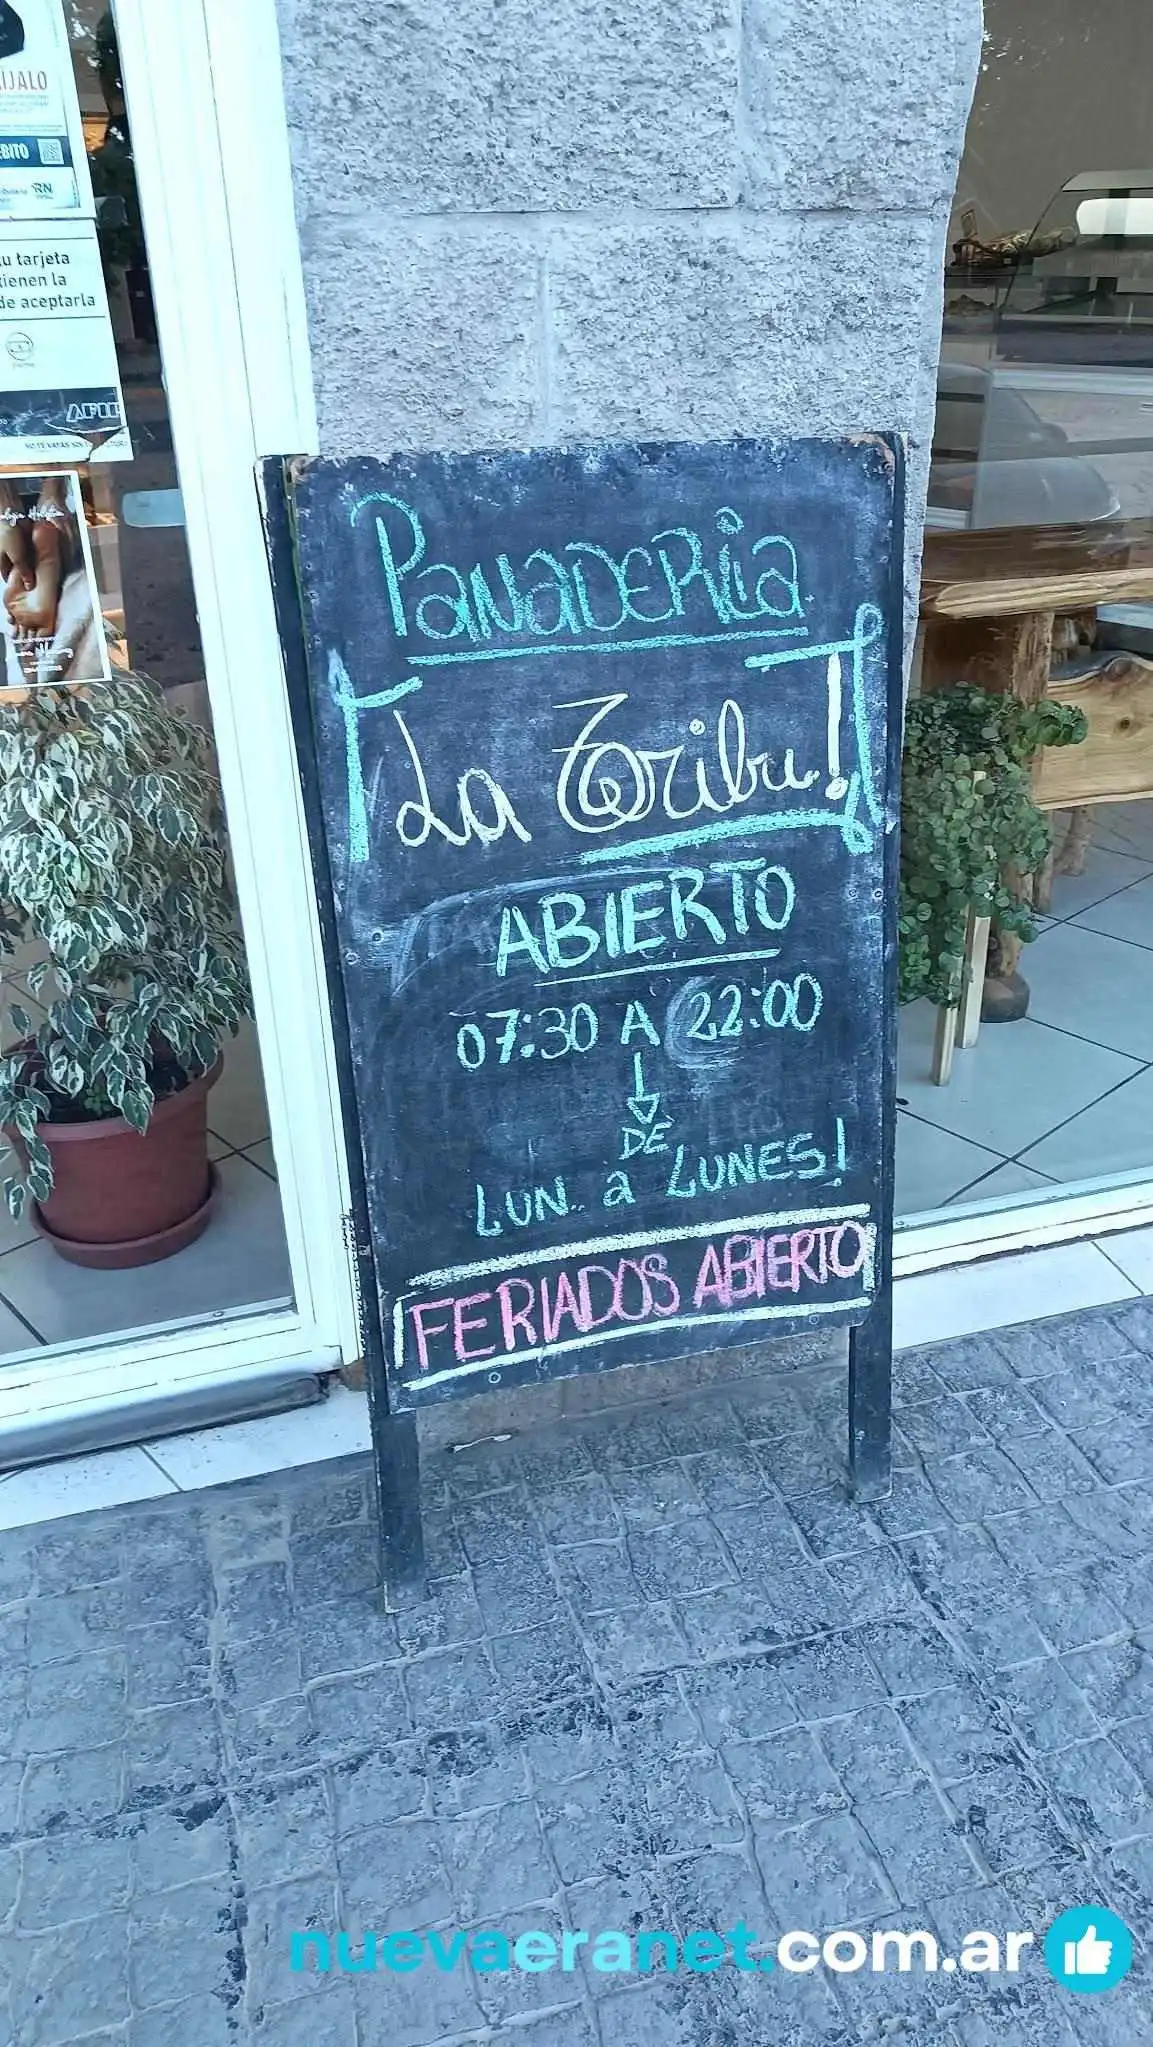 ÍJALO
ÉBITO
RN
u tarjeta
tienen la
de aceptarla
AFIP
PANADERÍA
La Tribu!
ABIERTO
07:30 A 22:00
DE
LUN.. a LUNES!
FERIADOS ABIERTO
nuevaeranet.com.ar